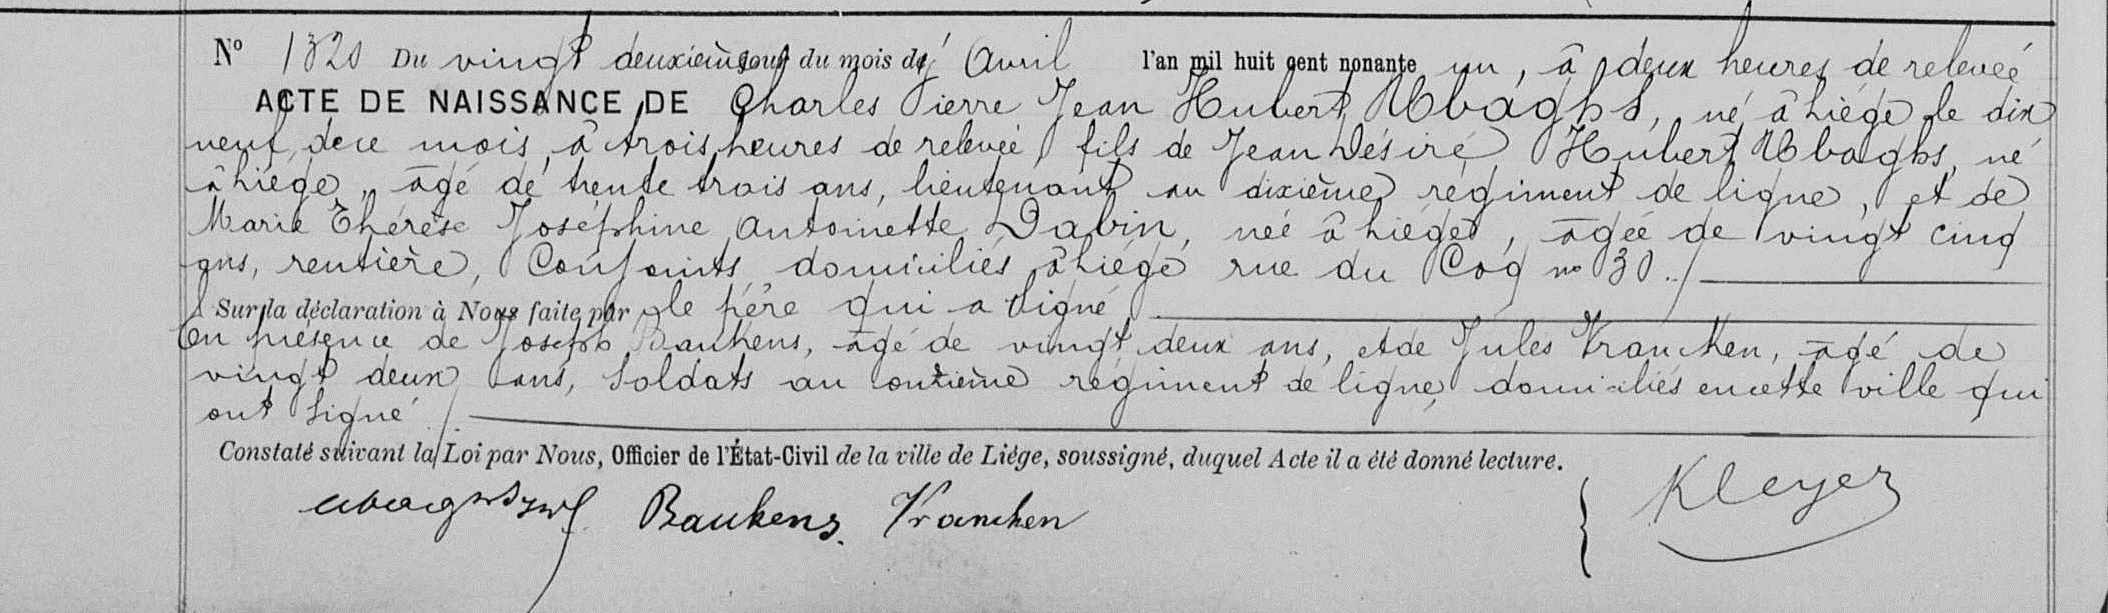 N° 1320 Du vingt deuxième jour du mois d'Avril l'an mil huit cent nonante un, à deux heures de relevée
ACTE DE NAISSANCE DE Charles Pierre Jean Hubert Ubaghs, né à Liége le dix
neuf de ce mois, à trois heures de relevée, fils de Jean Désiré Hubert Ubaghs, né
à Liége, âgé de trente trois ans, lieutenant au dixième régiment de ligne, et de
Marie Thérèse Joséphine Antoinette Dabin, née à Liége, âgée de vingt cinq
ans, rentière, Conjoints domiciliés à Liége rue du Coq n° 30./
Sur la déclaration à Nous faite par le père qui a signé
En présence de Joseph Baukens, âgé de vingt deux ans, et de Jules Vrancken, âgé de
vingt deux ans, soldats au onzième régiment de ligne, domiciliés en cette ville qui
ont signé ./
Constaté suivant la Loi par Nous, Officier de l'État-Civil de la ville de Liége, soussigné, duquel Acte il a été donné lecture.
Baukens. Vrancken Kleyer